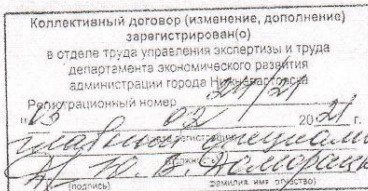 Коллективный договор (изменение, дополнение)
зарегистрирован(о)
в отделе труда управления экспертизы и труда
департамента экономического развития
администрации города Нижневартовска
Регистрационный номер 21/21
"03" 02 2021 г.
главный специалист
(должность)
Ю. В.
(подпись) фамилия имя отчество)